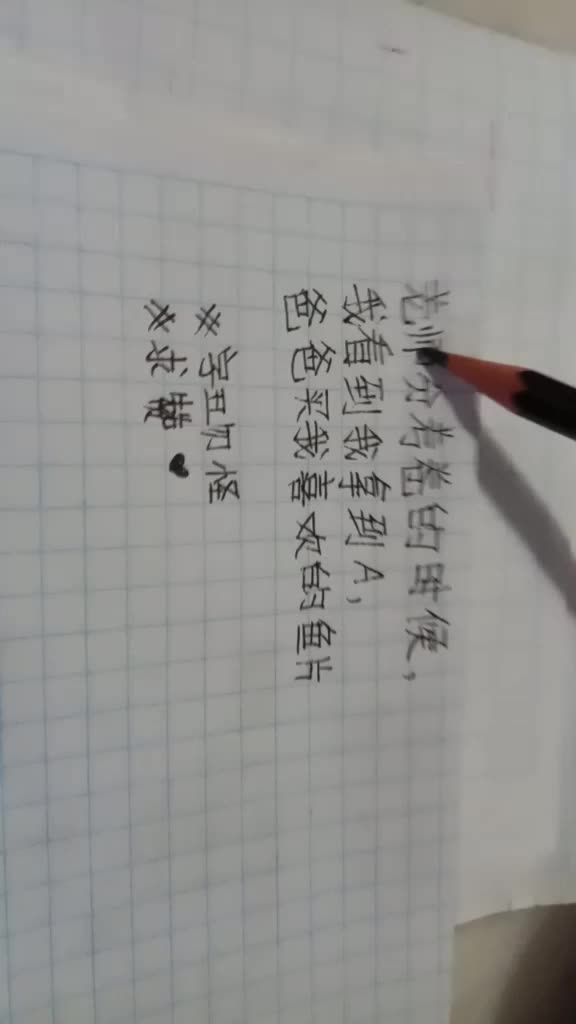 老师分考卷的时候，
我看到我拿到A，
爸爸买我喜欢的鱼片
*字丑勿怪
*求